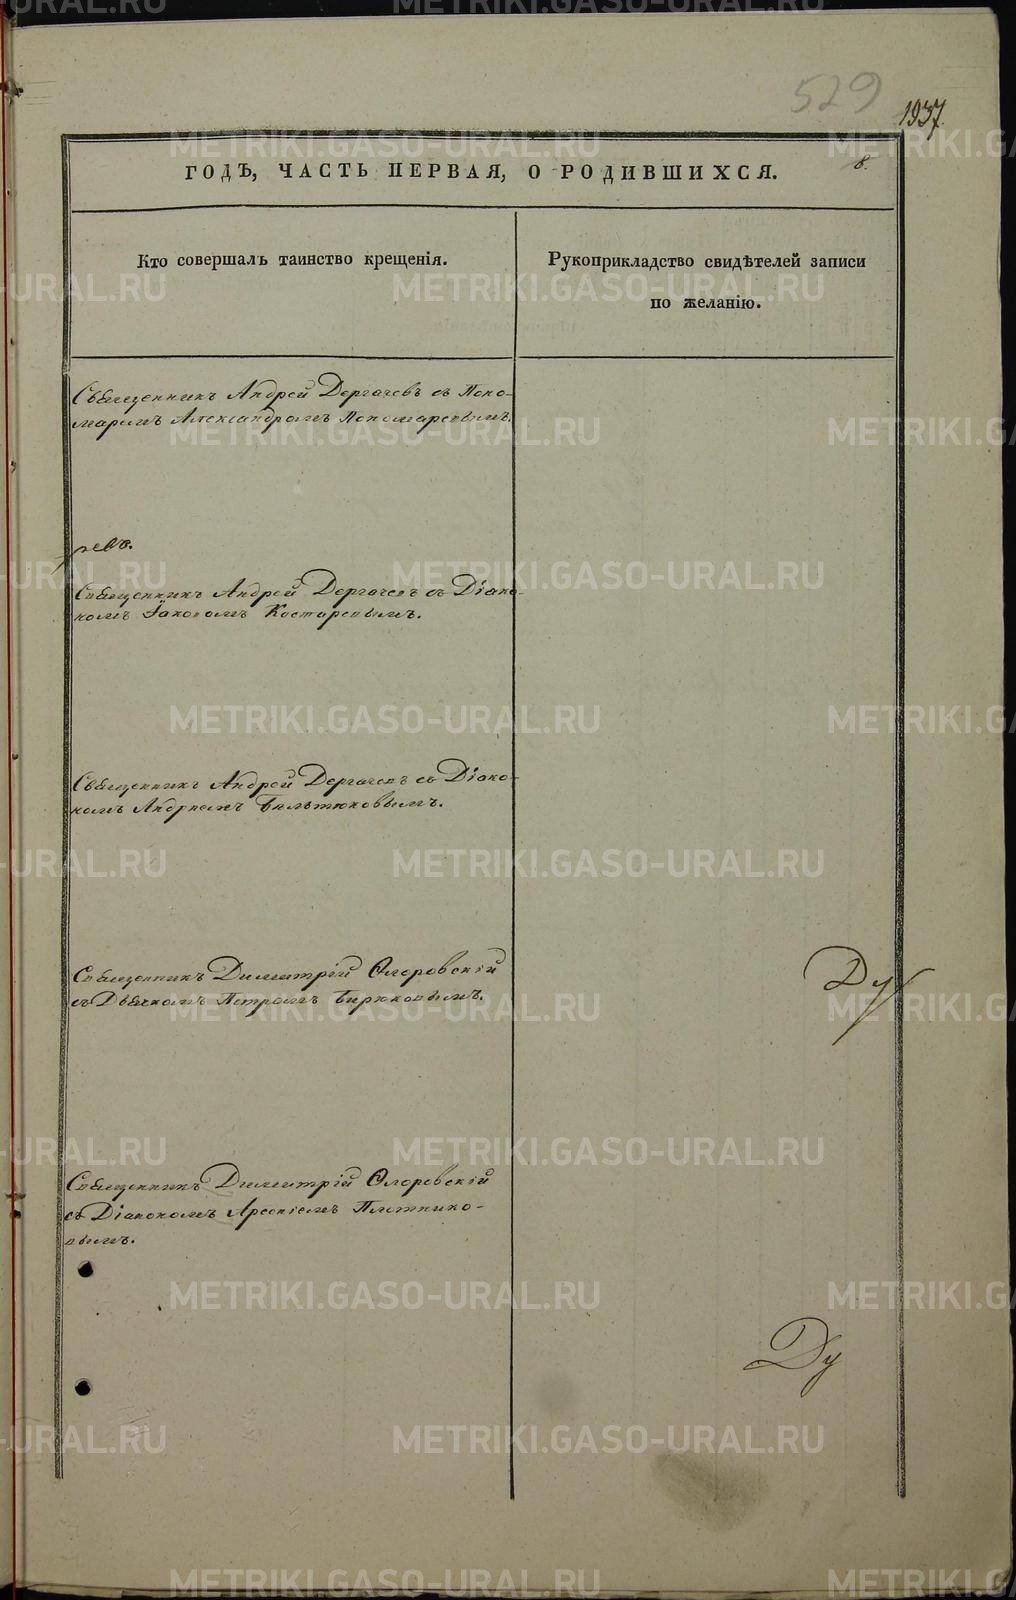 529
1937.
ГОДѢ, ЧАСТЬ ПЕРВАЯ, О РОДИВШИХСЯ.
8.
Кто совершалъ таинство крещенія.
Рукоприкладство свидѣтелей записи
по желанію.
Священникъ Андрей Дергачевъ съ Поно-
маремъ Александромъ Пономаревымъ.
ревъ.
Священникъ Андрей Дергачевъ съ Діако-
номъ Іаковомъ Костаревымъ.
Священникъ Андрей Дергачевъ съ Діако-
номъ Андреемъ Бильтюковымъ.
Священникъ Димитрій Флоровскій
съ Дьячкомъ Петромъ Бирюковымъ.
Священникъ Димитрій Флоровскій
съ Діакономъ Арсеніемъ Плотнико-
вымъ.
Ду
Ду
METRIKI.GASO-URAL.RU